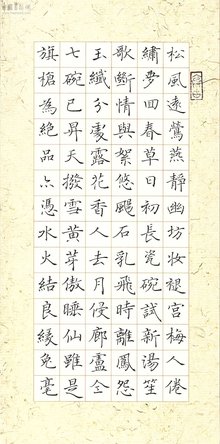 松風遠鶯燕靜幽坊妝褪宮梅人倦
繡夢回春草日初長瓷碗試新湯笙
歌斷情與絮悠颺石乳飛時離鳳怨
玉纖分處露花香人去月侵廊盧仝
七碗已昇天撥雪黃芽傲睡仙雖是
旗槍為絕品亦憑水火結良緣兔毫